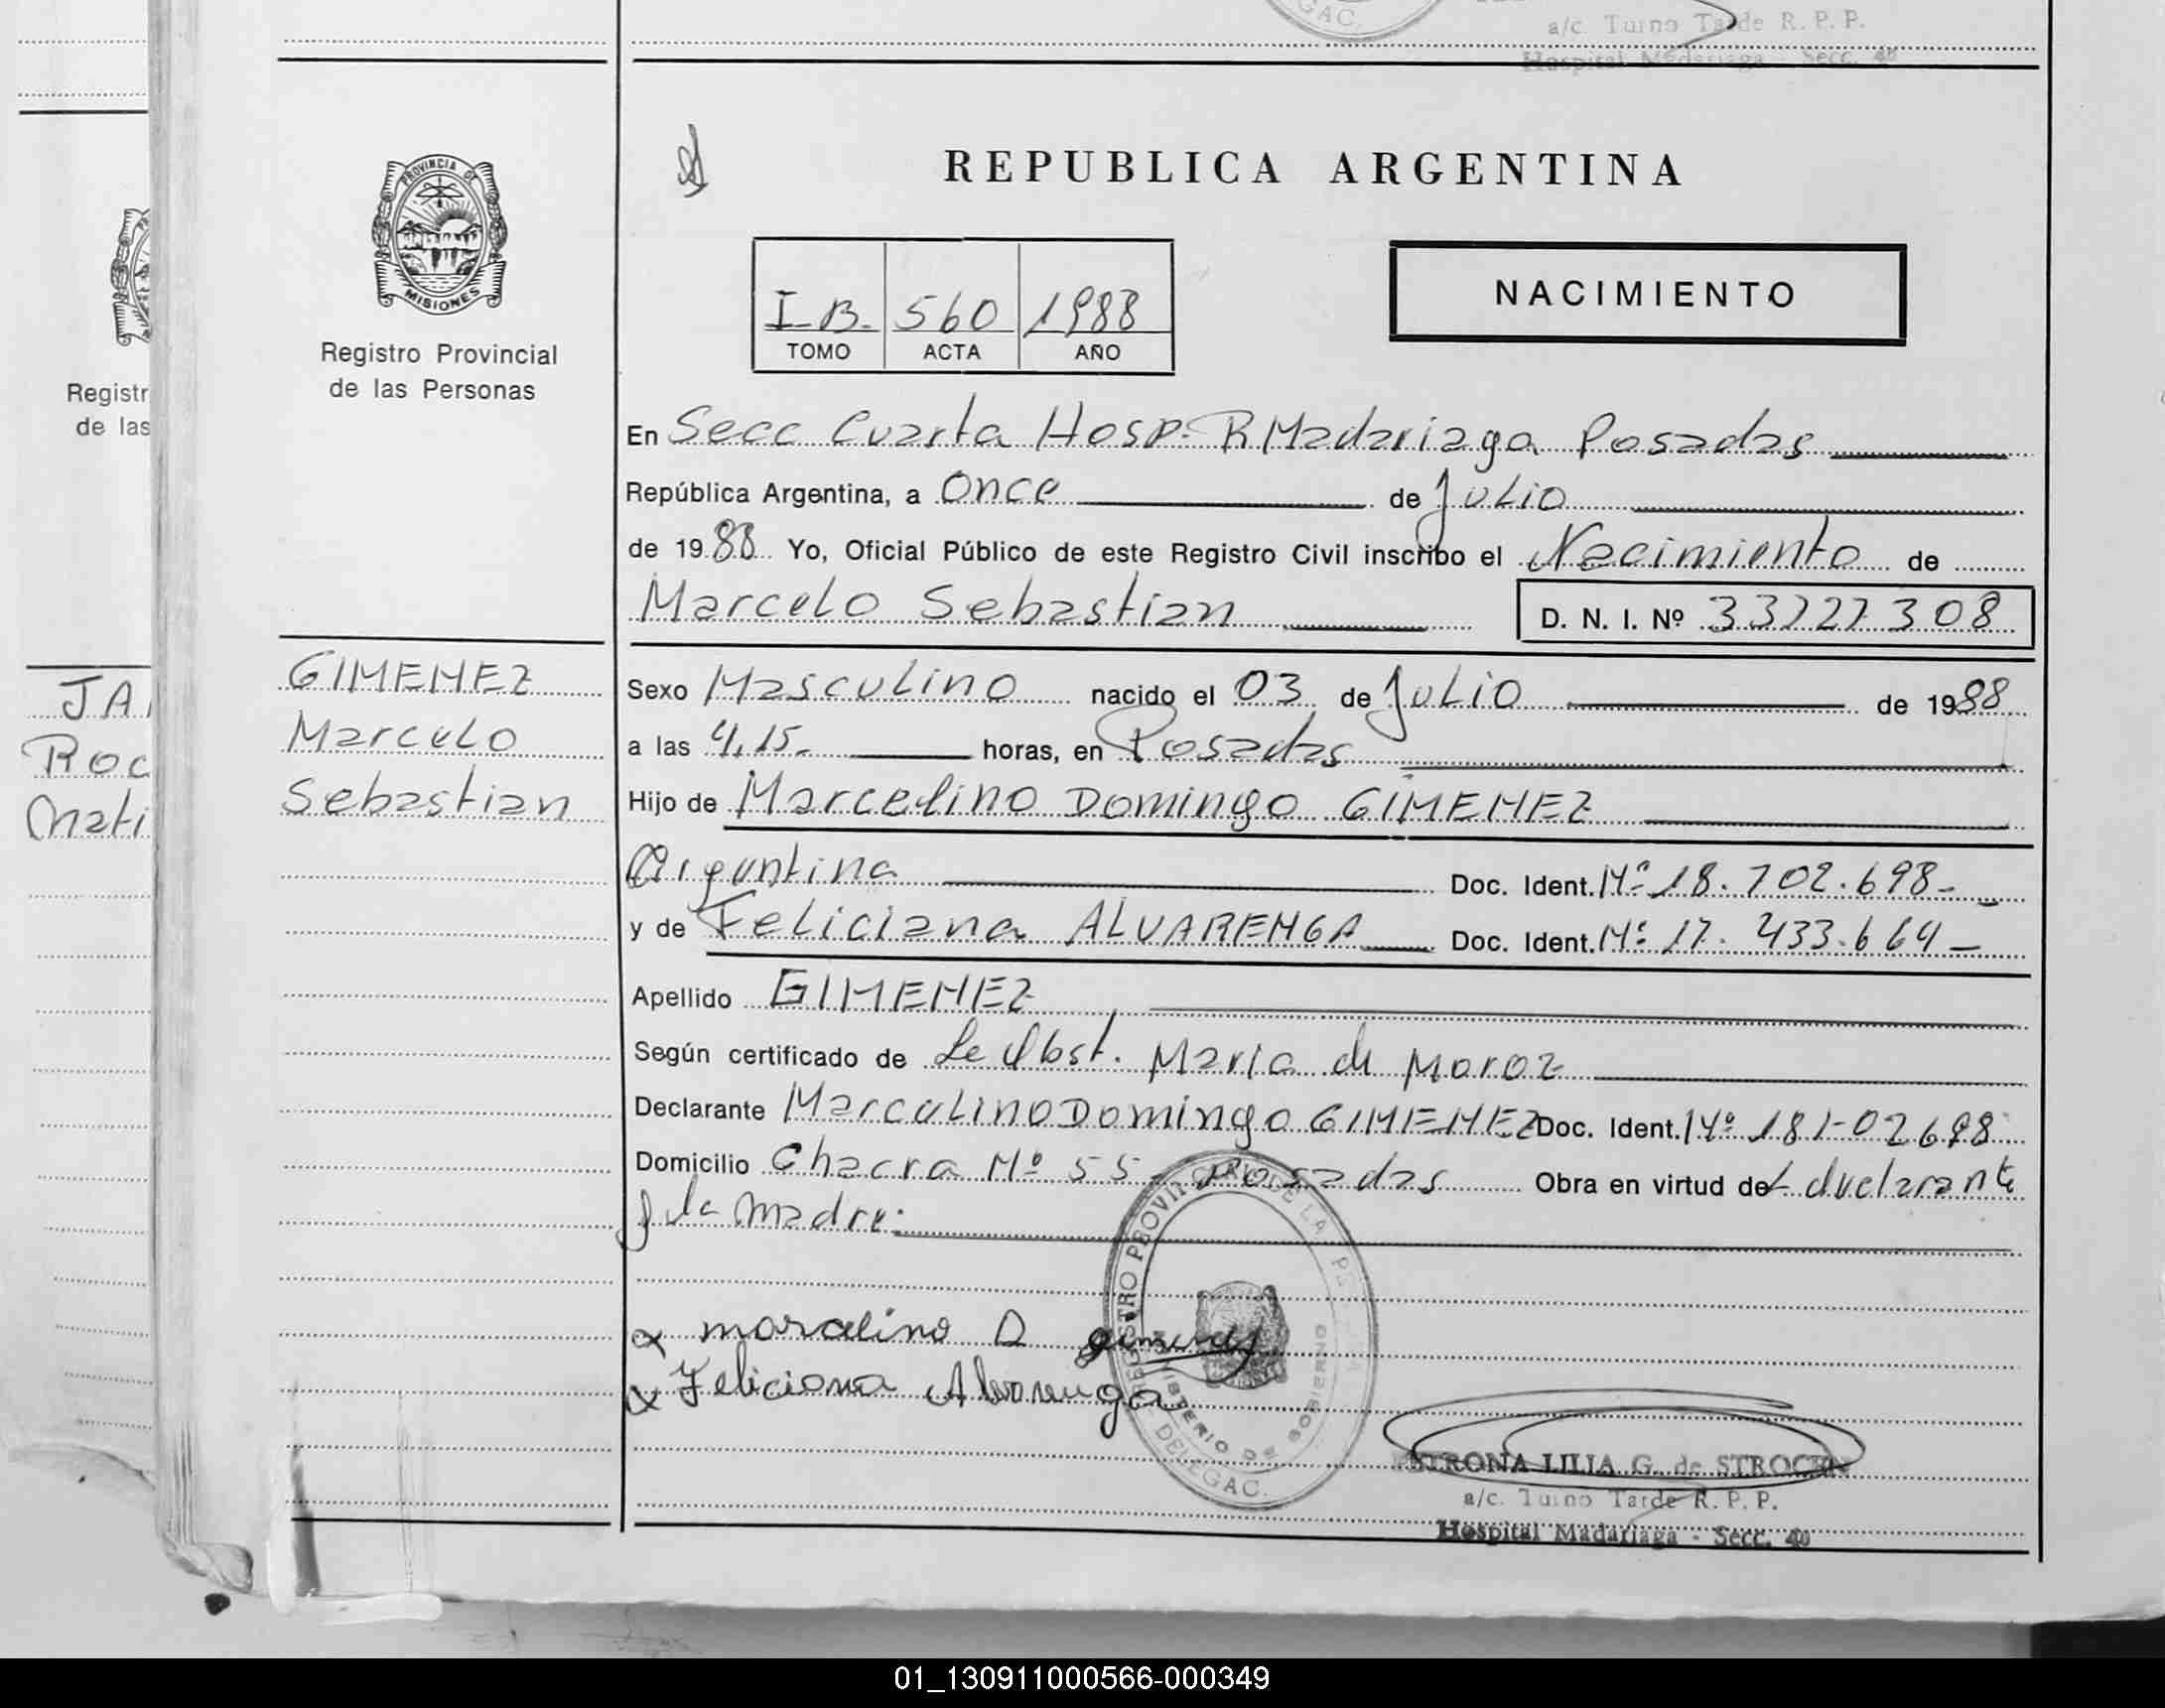 GAC.
a/c Turno Tarde R. P. P.
Hospital Madariaga - Secc. 4º
PROVINCIA DE
MISIONES
Registro Provincial
de las Personas
Registr
de las
REPUBLICA ARGENTINA
I-B- 560 1988
TOMO ACTA AÑO
NACIMIENTO
En Secc Cuarta Hosp. R Madariaga Posadas
República Argentina, a Once de Julio
de 1988 Yo, Oficial Público de este Registro Civil inscribo el Nacimiento de
Marcelo Sebastian D. N. I. Nº 33727308
JA
Roc
Mati
GIMENEZ
Marcelo
Sebastian
Sexo Masculino nacido el 03 de Julio de 1988
a las 4,15- horas, en Posadas
Hijo de Marcelino Domingo GIMENEZ
Argentina Doc. Ident. Nº 18.702.698-
y de Feliciana ALVARENGA Doc. Ident. Nº 17.433.664-
Apellido GIMENEZ
Según certificado de Le Obst. Maria de Moroz
Declarante Marcelino Domingo GIMENEZ Doc. Ident. Nº 18702698
Domicilio Chacra Nº 55- Posadas Obra en virtud del declarante
y la madre.
marcelino D gimenez
Feliciana Alvarenga
REGISTRO PROVINCIAL DE LA
MINISTERIO DE GOBIERNO
DELEGAC.
PETRONA LILIA G. de STROCEN
a/c. Turno Tarde R. P. P.
Hospital Madariaga - Secc. 4º
01_130911000566-000349